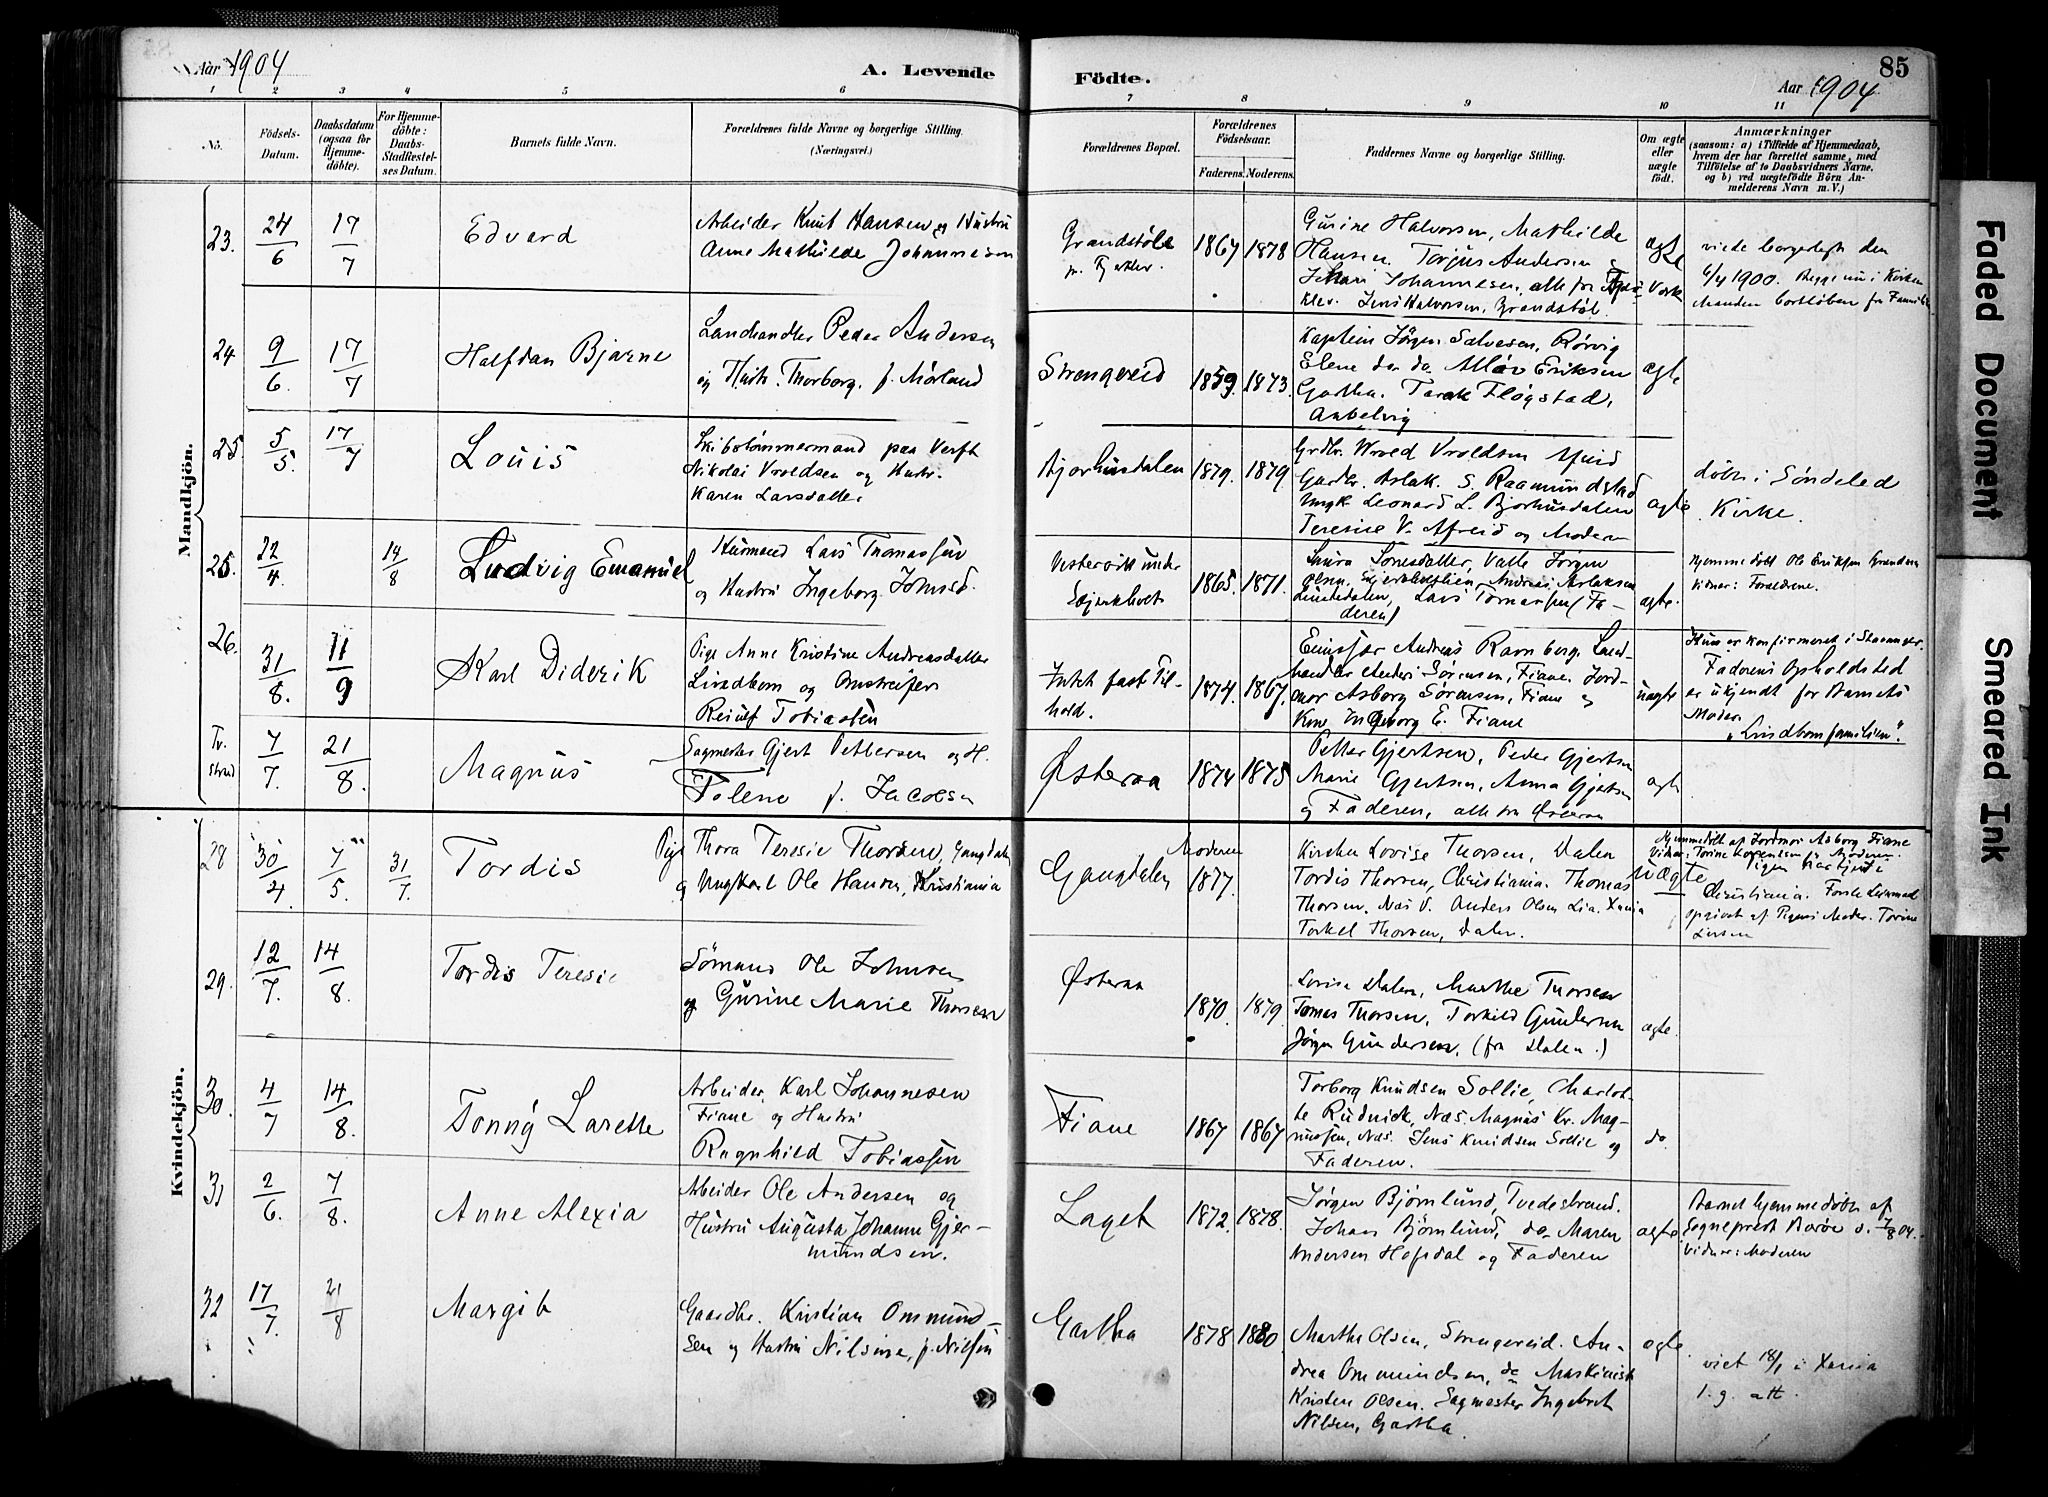 Aar 1904
A. Levende
Födte.
85
Aar 1904
1 2 3 4 5 6 7 8 9 10 11
No.
Födsels-
Datum.
Daabsdatum
(ogsaa for
Hjemme-
döbte).
For Hjemme-
döbte:
Daabs-
Stadfæstel-
ses Datum.
Barnets fulde Navn.
Forældrenes fulde Navne og borgerlige Stilling.
(Næringsvei.)
Forældrenes Bopæl.
Forældrenes
Födselsaar.
Faderens. Moderens.
Faddernes Navne og borgerlige Stilling.
Om ægte
eller
uægte
födt.
Anmærkninger
(saasom: a) i Tilfælde af Hjemmedaab,
hvem der har forrettet samme, med
Tilföielse af to Daabsvidners Navne.
og b) ved uægtefödte Börn An-
melderens Navn m. V.)
Mandkjön.
23.
24/6
17/7
Edvard
Arbeider Knut Hansen og Hustru
Anne Mathilde Johannesen
Grandstöle
1867 1878
Gurine Halvorsen, Mathilde
Hansen. Torjus Andersen
Johannesen, alle fra
Jens Halvorsen, Grandstöl.
ægte
viede borgerligt den
6/4 1900.
Manden bortløben fra Familien
24
9/6.
17/7
Halfdan Bjarne
Landhandler Peder Andersen
og Hustr. Thorborg, f. Mörland
Strengereid
1859 1873.
Kaptein Jörgen Salvesen, Rörvig
Elene do do Eriksen
Gartha. Tarak Flögstad,
ægte
25.
5/5.
17/7
Louis
Skibstömmermand paa Verft
Nikolai Vroldsen og Hustr.
Karen Larsdatter
Bjorhusdalen
1879. 1879
Grdbr. Wrold Vroldsen
Gardbr. Aslak S. Raamundstad
Ungk Leonard L. Bjorhusdalen
Teresine V. og Moderen
ægte
döbt i Söndeled
Kirke.
25.
22/4.
14/8
Ludvig Emanuel
Husmand Lars Thomassen
og Hustru Ingeborg Jonsd.
1865. 1871.
Jonsdatter, Valle Jörgen
Olsen, Andreas Aslaksen
Lundedalen, Lars Tomassen (Fa-
deren)
ægte.
Hjemmedöbt Ole Eriksen
Vidner: Forældrene.
26.
31/8.
11/9
Karl Diderik
Pige Anne Kristine Andreasdatter
Lindbom og Omstreifer
Reiulf Tobiassen
Intet fast Til-
hold.
1874. 1867.
Andreas Ravnberg. Land-
handler Sörensen, Fiane. Jord-
mor Asborg Sörensen, Fiane og
Kone Ingeborg E. Fiane
uægte
Hun er konfirmeret i
Faderens Opholdsted
er ukjendt for Barnets
Moder.
„Lindbomfamilien".
Tv.
strand
7/7.
21/8.
Magnus
Sagmester Gjert Pettersen og H.
Tolene f. Jacobsen
Østeraa
1874 1875
Petter Gjertsen, Peder Gjertsen
Marie Gjertsen, Anna Gjertsen
og Faderen, alle fra Østeraa
ægte
Kvindekjön.
28
30/4
7/5.
31/7.
Tordis
Pige Thora Teresie Thorsen, Gangdalen
og Ungkarl Ole Hansen, Kristiania
Gangdalen
Moderen
1877.
Kirsten Lovise Thorsen, Dalen
Tordis Thorsen, Christiania. Thomas
Thorsen, Næs V. Anders Olsen Lia. Xania
Torkel Thorsen, Dalen.
uægte
Hjemmedöbt af Jordmor Asborg Fiane
Pigen har tjent i
Christiania.
opgivet af Pigens Moder. Torine
29.
12/7.
14/8.
Tordis Teresie
Sömand Ole Johnsen
og Gurine Marie Thorsen
Østeraa
1870. 1879.
Lovise Dalen, Marthe Thorsen
Tomas Thorsen, Torkild Gundersen
Jörgen Gundersen, (fra Dalen.)
ægte.
30.
4/7
14/8.
Tonny Larette
Arbeider, Karl Johannesen
Fiane og Hustru
Ragnhild Tobiassen
Fiane
1867 1867
Torborg Knudsen Sollie, Charlot-
te Rudvick, Næs. Magnus Kr. Mag-
nussen, Næs. Jens Knudsen Sollie og
Faderen.
do.
31
2/6.
7/8.
Anne Alexia
Arbeider Ole Andersen og
Hustru Augusta Johanne Gjer-
mundsen.
Laget
1872. 1878.
Jörgen Björnlund, Tvedestrand.
Johan Björnlund, do Maren
Andersen Hopsdal og Faderen
ægte.
Barnet hjemmedöbt af
Sogneprest Barøe d. 7/8 04.
Vidner: Moderen
32
17/7.
21/8
Margit
Gaardbr. Kristian Ommund-
sen og Hustru Nilsine, f. Nilsen
Gartha
1878 1880.
Marthe Olsen, Strengereid. An-
drea Ommundsen, do Maskinist
Kristen Olsen. Sagmester Ingebret
Nilsen, Gartha.
ægte.
viet 18/1 i Xania
l. g. att.
Faded Document
Smeared Ink